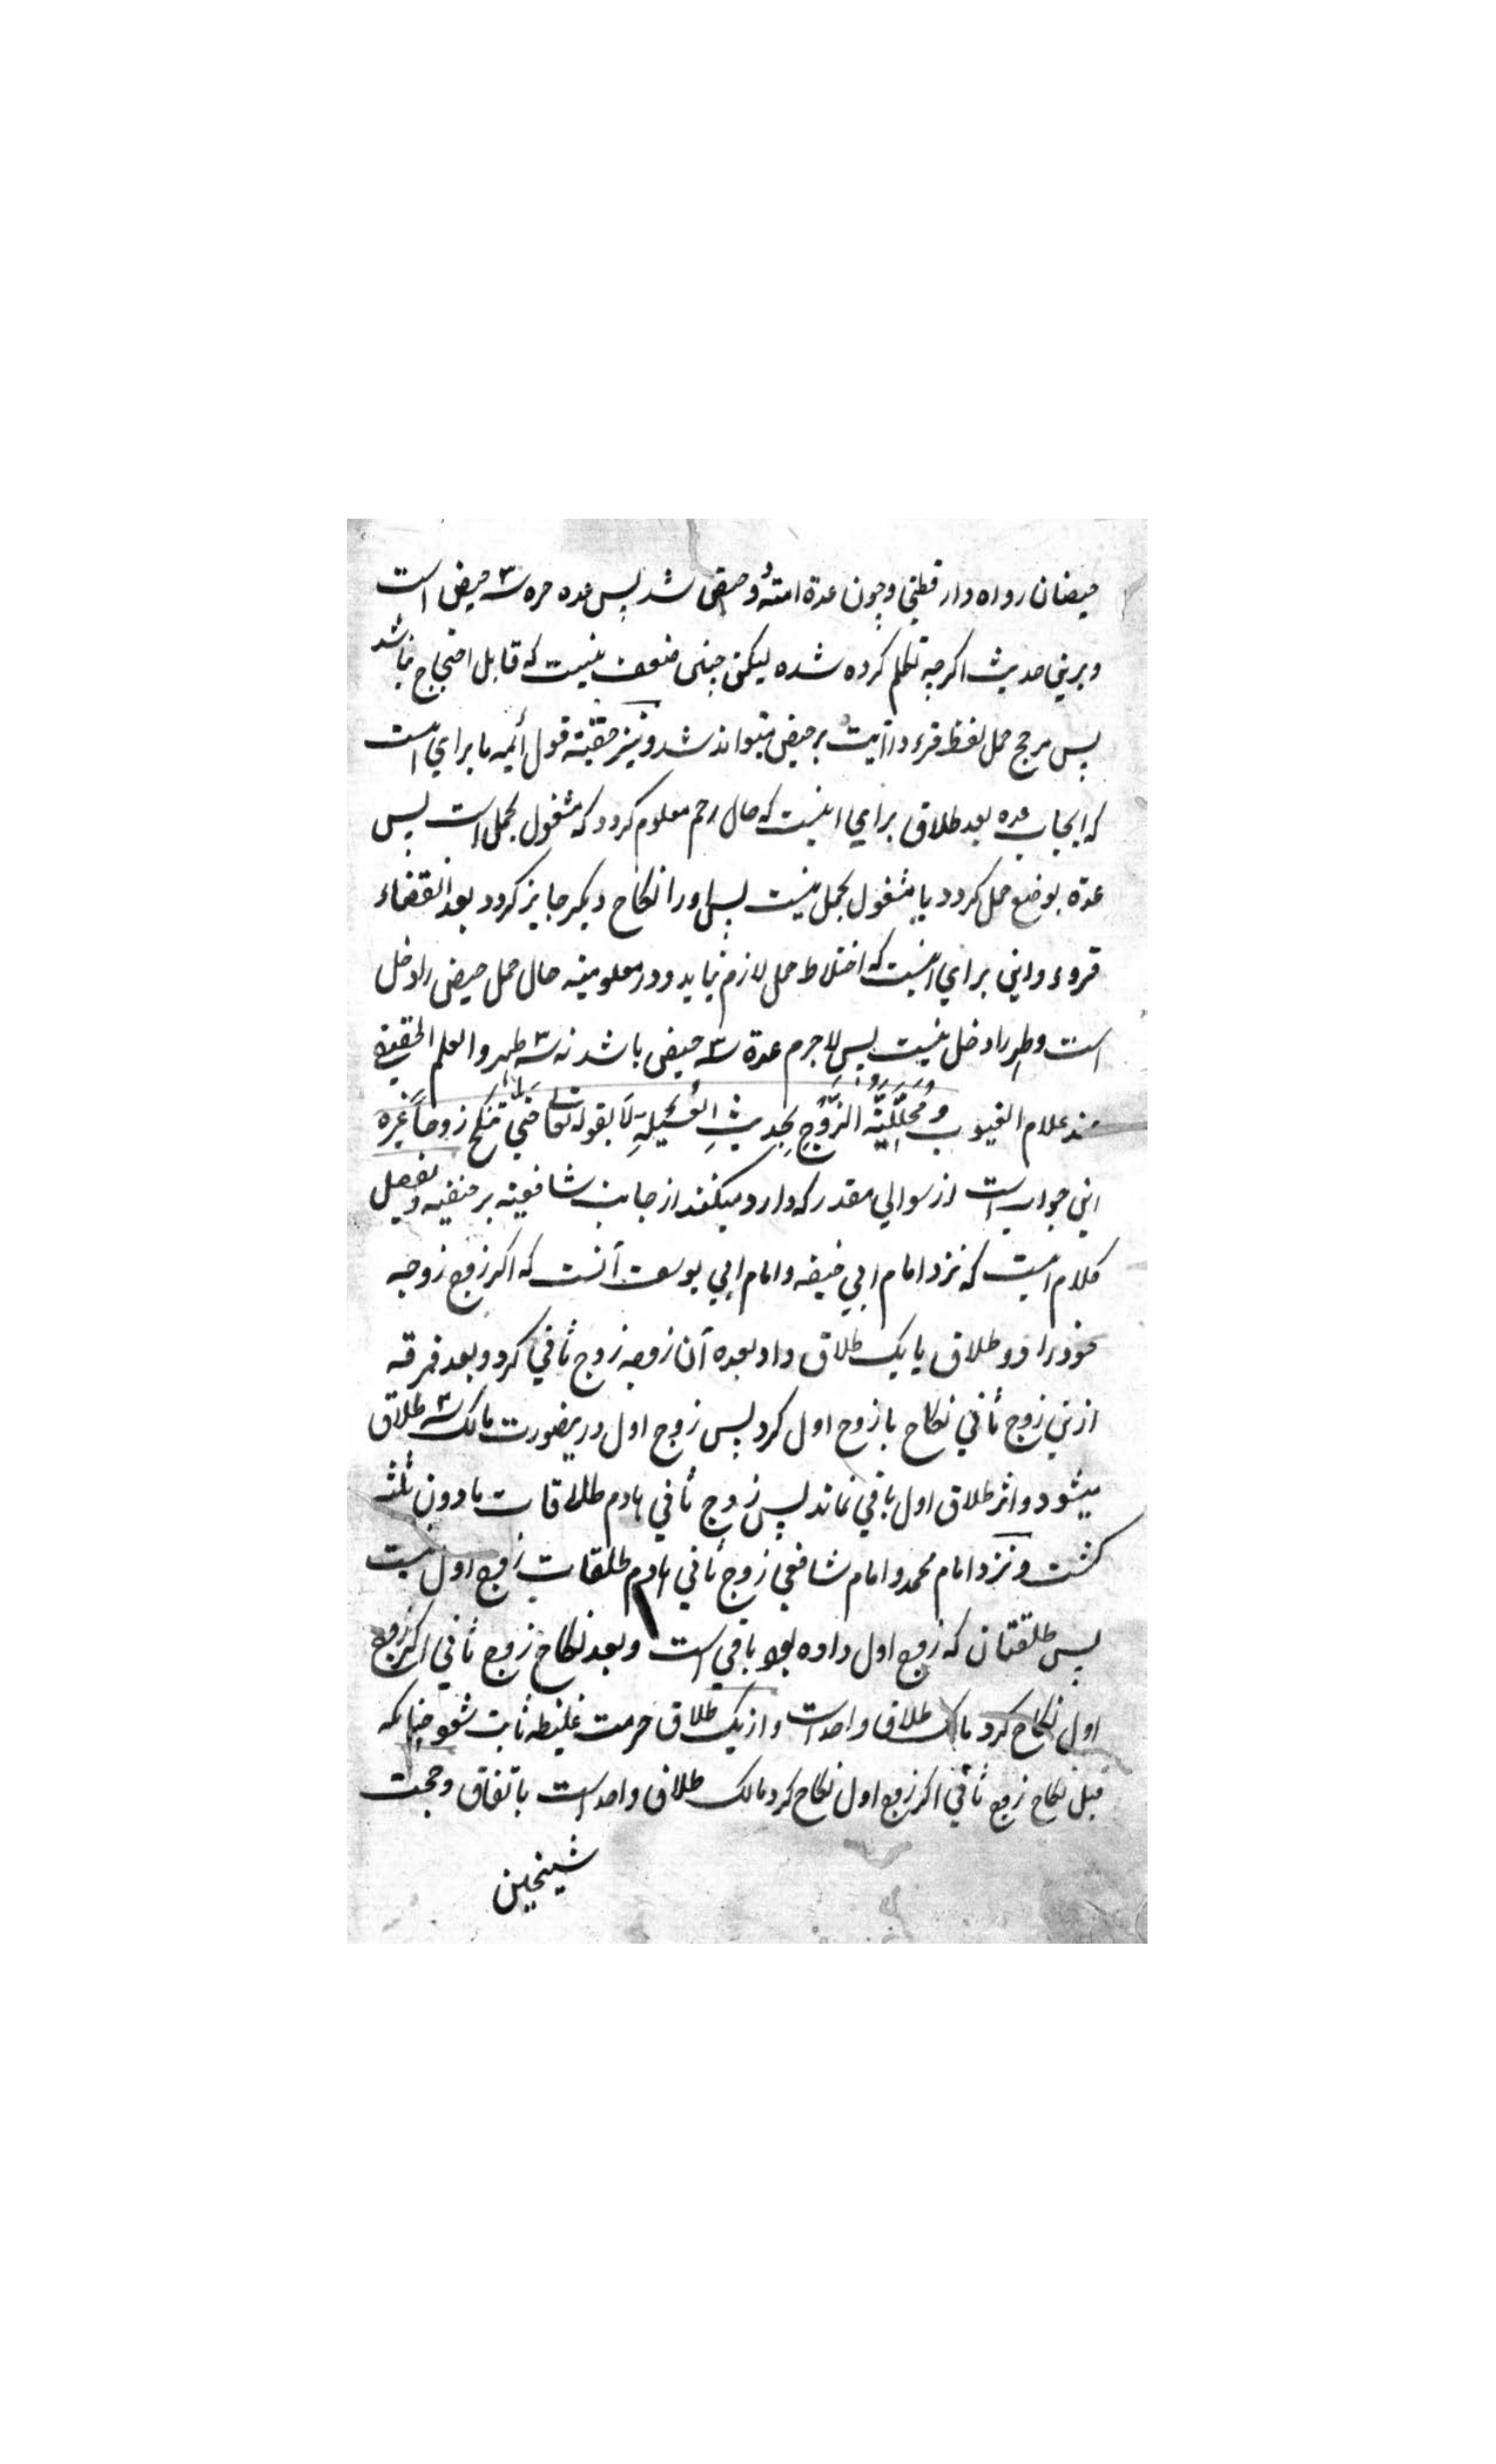 حیضتان رواه دارقطنی و چون عدة امة دو حیض شد پس عده حره سه حیض است
و برین حدیث اکرچه تکلم کرده شده لیکن چنین ضعف نیست که قابل احتجاج نباشد
پس مرجح حمل لفظ قرء در آیت بر حیض میتواند شد و نیز حقیقة قول أئمه ما برای است
که ایجاب عده بعد طلاق برای اینست که حال رحم معلوم کردد که مشغول بحمل است پس
عدّه بوضع حمل کردد یا مشغول بحمل نیست پس او را نکاح دیکر جایز کردد بعد انقضاء
قروء و این برای انیست که اختلاط حمل لازم نیاید و در معلومیته حال حمل حیض را دخل
است و طهر را دخل نیست پس لاجرم عدة سه حیض باشد نه سه طهر والعلم الحقیقی
عند علام الغیوب وَمُحَلِّلِیَّة الزَّوْجِ بِحَدِیثِ العُسَیْلَةِ لَا بقوله تعالی حتی تَنکِحَ زوجاً غَیره
این جوابست از سوالی مقدر که وارد میکنند از جانب شافعیه بر حنفیه و تفصیل
کلام اینست که نزد امام ابی حنیفه و امام ابی یوسف آنست که اکر زوج زوجه
خود را دو طلاق یا یک طلاق داد بعده آن زوجه زوج ثانی کرد و بعد فرقه
ازین زوج ثانی نکاح با زوج اول کرد پس زوج اول درینصورت مالک سه طلاق
میشود و اثر طلاق اول باقی نماند پس زوج ثانی هادم طلاقات مادون ثلثه
کشت و نزد امام محمد و امام شافعی زوج ثانی هادم طلقات زوج اول نیست
پس طلقتان که زوج اول داده بود باقی است و بعد نکاح زوج ثانی اکر زوج
اول نکاح کرد مالک طلاق واحد است و از یک طلاق حرمت غلیظه ثابت شود چنانکه
قبل نکاح زوج ثانی اکر زوج اول نکاح کرد مالک طلاق واحد است باتفاق و حجت
شیخین